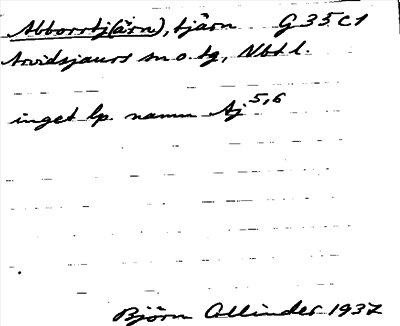 Abborrtj(ärn), tjärn G 35 C 1
Arvidsjaurs sn o. tg, Nbt l.
inget lp. namn Aj 5,6
Björn Collinder 1937